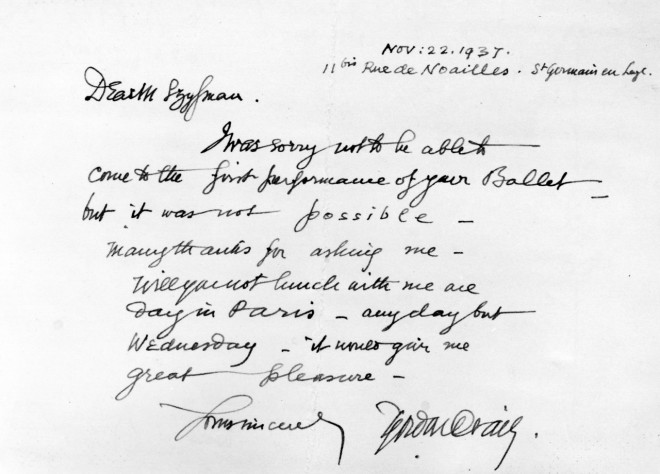 Nov: 22. 1937.
11 bis Rue de Noailles. St Germain en Laye.
Dear M Szyfman.
I was sorry not to be able to
come to the first performance of your Ballet –
but it was not possible –
many thanks for asking me –
Will you not lunch with me one
day in Paris – any day but
Wednesday – it would give me
great pleasure –
Yours sincerely
Gordon Craig.